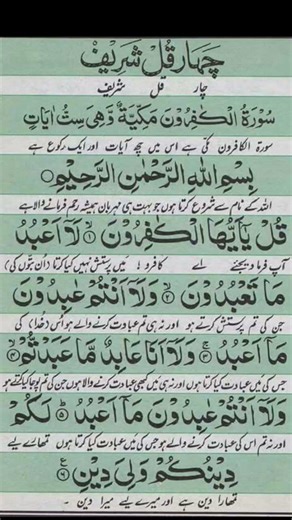 چہار قل شریف
چار قل شریف
سُوْرَةُ الْكٰفِرُوْنَ مَكِّيَّةٌ وَّهِيَ سِتُّ اٰيَاتٍ
سورۃ الکافرون مکی ہے اس میں چھ آیات اور ایک رکوع ہے
بِسْمِ اللهِ الرَّحْمٰنِ الرَّحِيْمِ
اللہ کے نام سے شروع کرتا ہوں جو بہت ہی مہربان ہمیشہ رحم فرمانے والا ہے
قُلْ يٰۤاَيُّهَا الْكٰفِرُوْنَ ۝۱ لَاۤ اَعْبُدُ
آپ فرما دیجئے اے کافرو! میں پرستش نہیں کیا کرتا (ان بتوں کی)
مَا تَعْبُدُوْنَ ۝۲ وَلَاۤ اَنْتُمْ عٰبِدُوْنَ
جن کی تم پرستش کرتے ہو اور نہ ہی تم عبادت کرنے والے ہو اس (خدا) کی
مَاۤ اَعْبُدُ ۝۳ وَلَاۤ اَنَا عَابِدٌ مَّا عَبَدْتُّمْ ۝۴
جس کی میں عبادت کیا کرتا ہوں اور نہ ہی میں کبھی عبادت کرنے والا ہوں جن کی تم پوجا کیا کرتے ہو
وَلَاۤ اَنْتُمْ عٰبِدُوْنَ مَاۤ اَعْبُدُ ۝۵ لَكُمْ
اور نہ تم اس کی عبادت کرنے والے ہو جس کی میں عبادت کیا کرتا ہوں تمہارے لیے
دِيْنُكُمْ وَلِيَ دِيْنِ ۝۶
تمہارا دین ہے اور میرے لیے میرا دین ۔